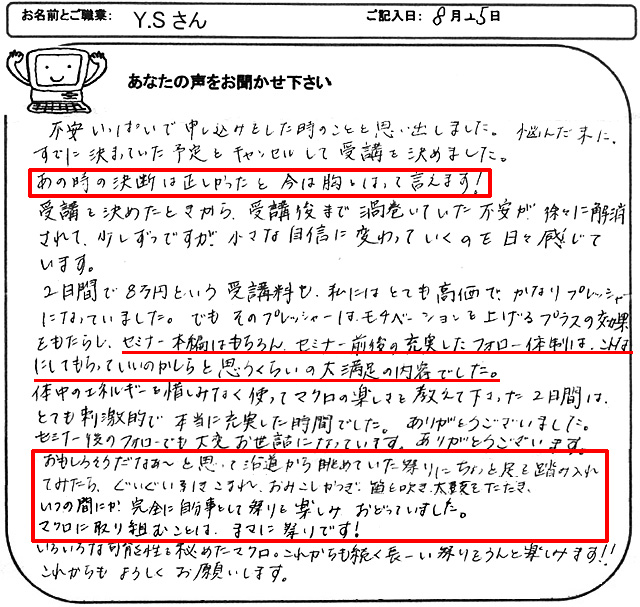 お名前とご職業： Y.Sさん ご記入日：8月25日
あなたの声をお聞かせ下さい
不安いっぱいで申し込みをした時のことを思い出しました。悩んだ末に、
すでに決まっていた予定をキャンセルして受講を決めました。
あの時の決断は正しかったと今は胸をはって言えます！
受講を決めたときから、受講後まで渦巻いていた不安が徐々に解消
されて、少しずつですが小さな自信に変わっていくのを日々感じて
います。
2日間で8万円という受講料も、私にはとても高価で、かなりプレッシャー
になっていました。でもそのプレッシャーは、モチベーションを上げるプラスの効果
をもたらし、セミナー本編はもちろん、セミナー前後の充実したフォロー体制は、こんな
にしてもらっていいのかしらと思うくらいの大満足の内容でした。
体中のエネルギーを惜しみなく使ってマクロの楽しさを教えて下さった2日間は、
とても刺激的で本当に充実した時間でした。ありがとうございました。
セミナー後のフォローでも大変お世話になっています。ありがとうございます。
おもしろそうだなあ〜と思って沿道から眺めていた祭りにちょっと足を踏み入れ
てみたら、ぐいぐい引きこまれ、おみこしかつぎ、笛を吹き、太鼓をたたき、
いつの間にか完全に自分事として祭りを楽しみおどっていました。
マクロに取り組むことは、まさに祭りです！
いろいろな可能性を秘めたマクロ。これからも続く長ーい祭りをうんと楽しみます！！
これからもよろしくお願いします。